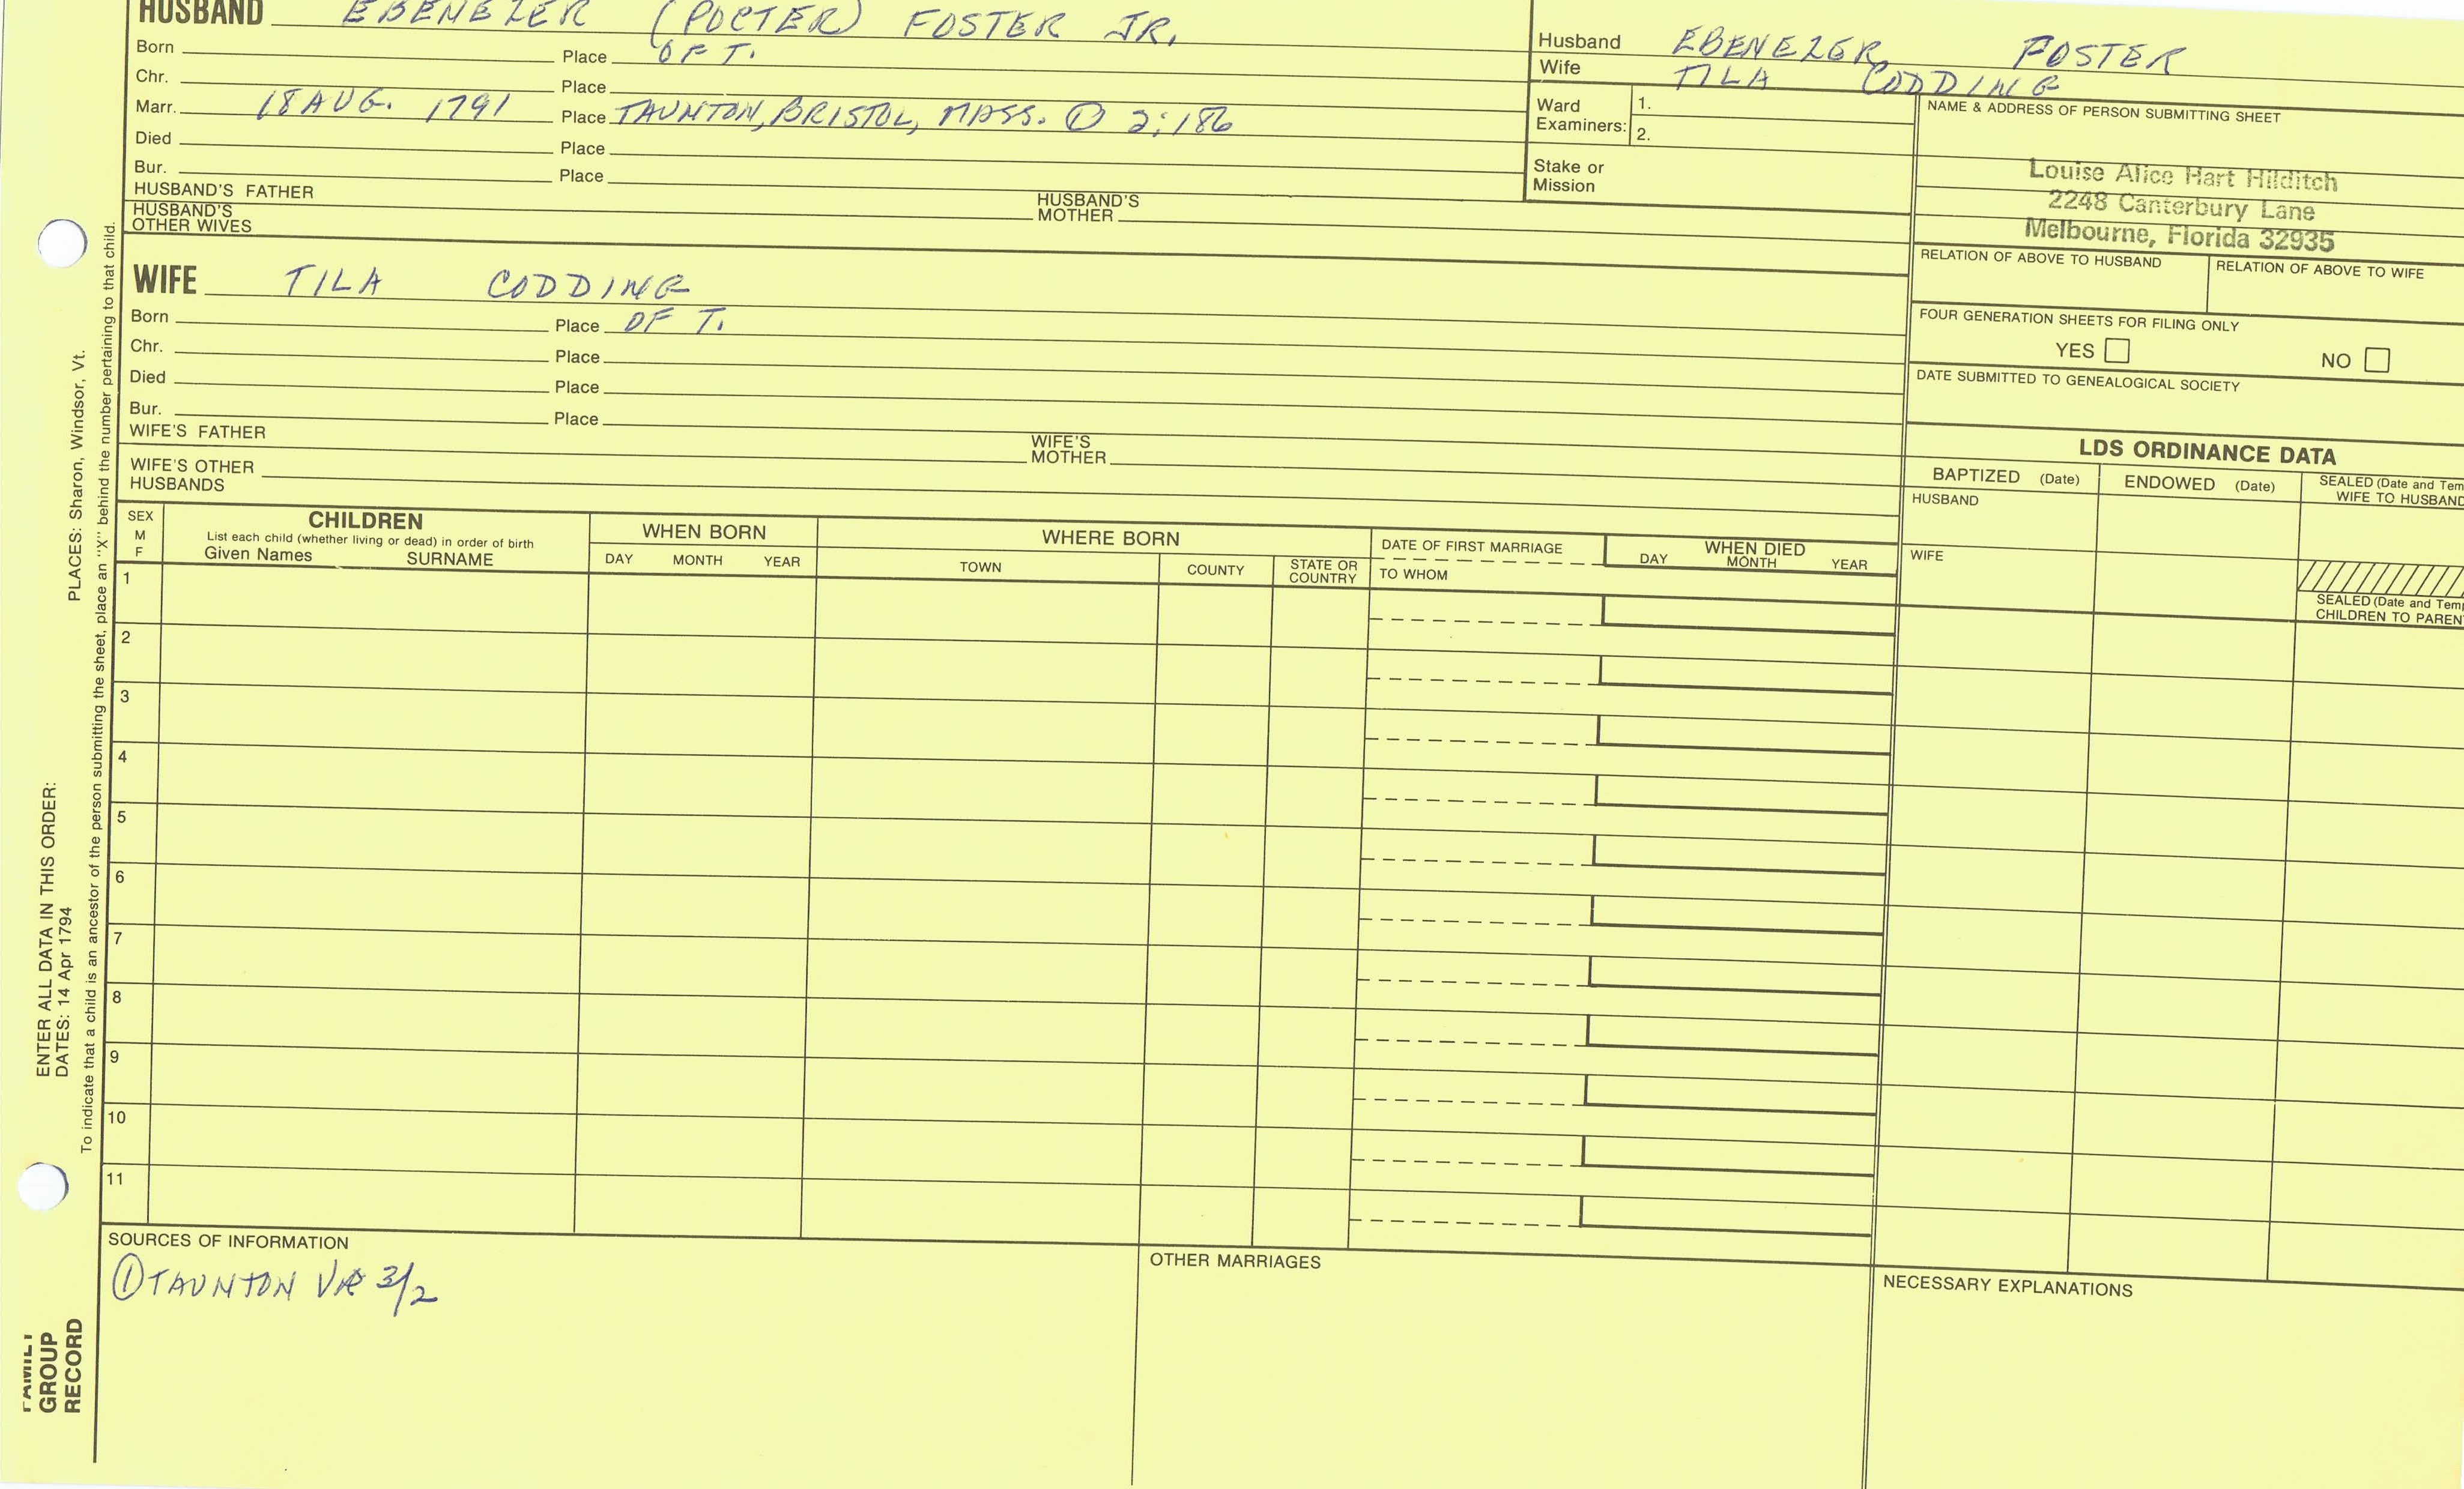 HUSBAND EBENEZER (POCTER) FOSTER JR.
Born Place OF T.
Chr. Place
Marr. 18 AUG. 1791 Place TAUNTON, BRISTOL, MASS. ① 2:186
Died Place
Bur. Place
HUSBAND'S FATHER HUSBAND'S MOTHER
HUSBAND'S OTHER WIVES
Husband EBENEZER FOSTER
Wife TILA CODDING
Ward Examiners: 1.
2.
Stake or Mission
NAME & ADDRESS OF PERSON SUBMITTING SHEET
Louise Alice Hart Hilditch
2248 Canterbury Lane
Melbourne, Florida 32935
RELATION OF ABOVE TO HUSBAND RELATION OF ABOVE TO WIFE
FOUR GENERATION SHEETS FOR FILING ONLY
YES NO
DATE SUBMITTED TO GENEALOGICAL SOCIETY
WIFE TILA CODDING
Born Place OF T.
Chr. Place
Died Place
Bur. Place
WIFE'S FATHER WIFE'S MOTHER
WIFE'S OTHER HUSBANDS
LDS ORDINANCE DATA
BAPTIZED (Date) ENDOWED (Date) SEALED (Date and Tem
WIFE TO HUSBAND
HUSBAND
WIFE
SEALED (Date and Temp
CHILDREN TO PAREN
SEX
M
F
CHILDREN
List each child (whether living or dead) in order of birth
Given Names SURNAME
WHEN BORN
DAY MONTH YEAR
WHERE BORN
TOWN COUNTY STATE OR COUNTRY
DATE OF FIRST MARRIAGE
TO WHOM
WHEN DIED
DAY MONTH YEAR
1
2
3
4
5
6
7
8
9
10
11
SOURCES OF INFORMATION
① TAUNTON VR 3/2
OTHER MARRIAGES
NECESSARY EXPLANATIONS
FAMILY
GROUP
RECORD
ENTER ALL DATA IN THIS ORDER:
DATES: 14 Apr 1794
PLACES: Sharon, Windsor, Vt.
To indicate that a child is an ancestor of the person submitting the sheet, place an "X" behind the number pertaining to that child.